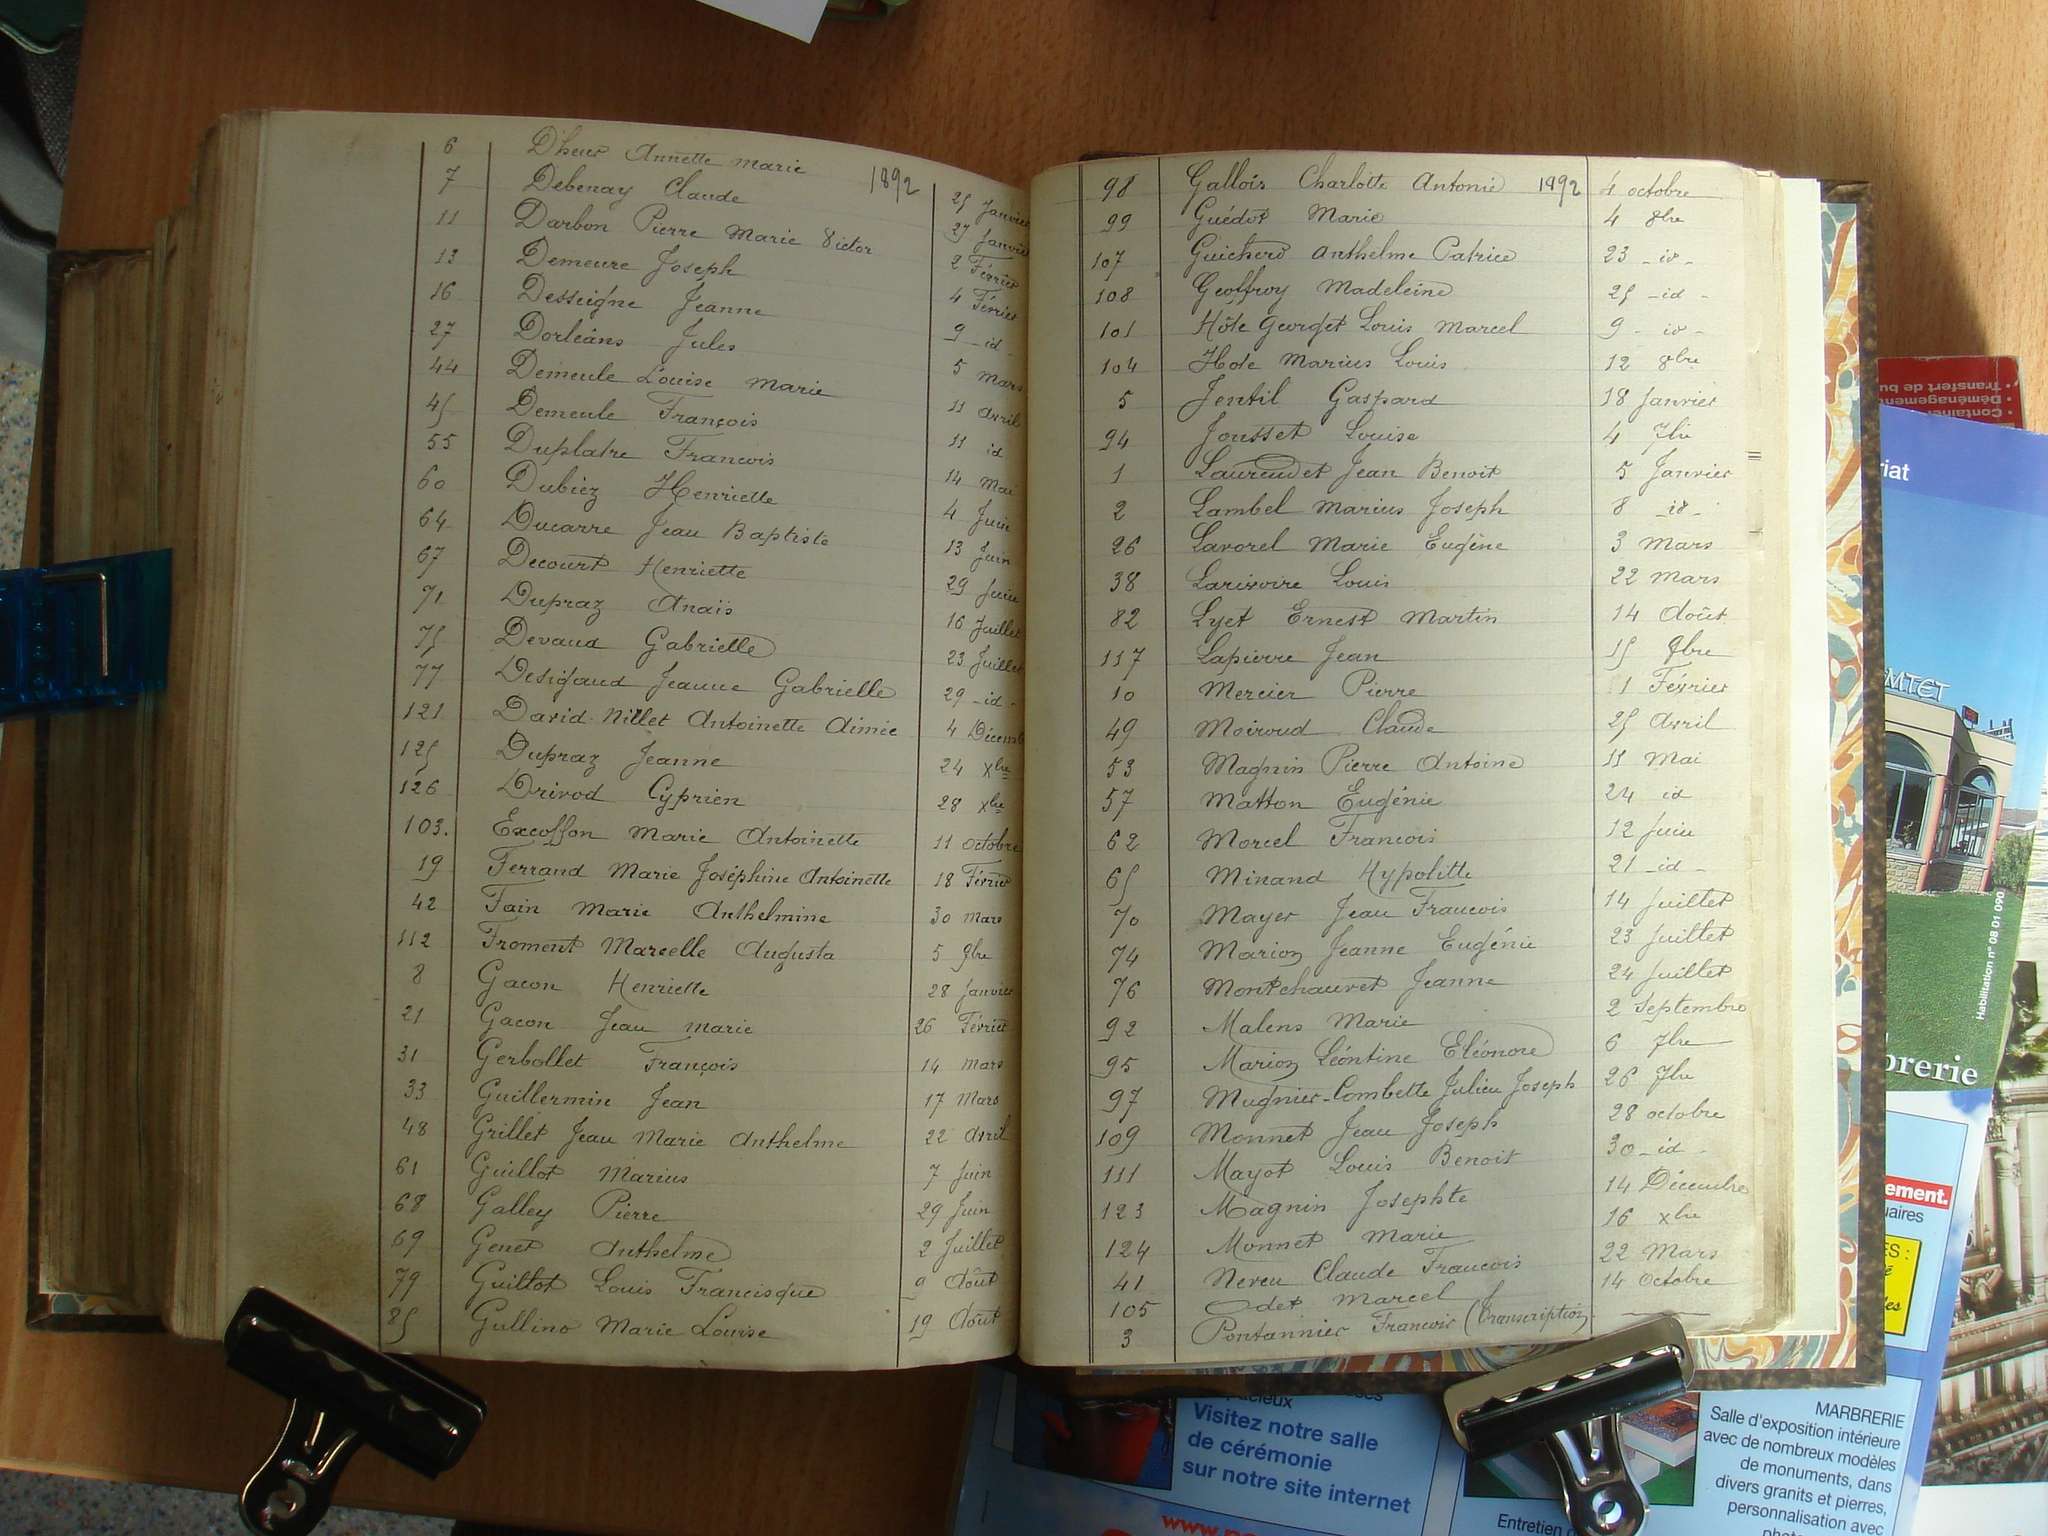 6 D'heur Annette Marie 1892 25 Janvier
7 Debenay Claude 27 Janvier
11 Darbon Pierre Marie Victor 2 Février
13 Demeure Joseph 4 Février
16 Desseigne Jeanne 9 -id-
27 Dorléans Jules 5 Mars
44 Demeule Louise Marie 11 Avril
45 Demeule François 11 id
55 Duplatre Francois 14 Mai
60 Dubiez Henriette 4 Juin
64 Ducarre Jean Baptiste 13 Juin
67 Decourt Henriette 29 Juin
71 Dupraz Anaïs 16 Juillet
75 Devaud Gabrielle 23 Juillet
77 Desigaud Jeanne Gabrielle 29 -id-
121 David-Nillet Antoinette Aimée 4 Décemb
125 Dupraz Jeanne 24 xbre
126 Drivod Cyprien 28 xbre
103. Excoffon Marie Antoinette 11 octobre
19 Ferrand Marie Joséphine Antoinette 18 Février
42 Fain Marie Anthelmine 30 Mars
112 Froment Marcelle Augusta 5 9bre
8 Gacon Henriette 28 Janvier
21 Gacon Jean Marie 26 Février
31 Gerbollet François 14 Mars
33 Guillermin Jean 17 Mars
48 Grillet Jean Marie Anthelme 22 Avril
61 Guillot Marius 7 Juin
68 Galley Pierre 29 Juin
69 Genet Anthelme 2 Juillet
79 Guillot Louis Francisque 9 Août
85 Gullino Marie Louise 19 Août
98 Gallois Charlotte Antonie 1892 4 octobre
99 Guédot Marie 4 8bre
107 Guicherd Anthelme Patrice 23 -id-
108 Geoffroy Madeleine 25 -id-
101 Hôte Georget Louis Marcel 9 -id-
104 Hote Marius Louis 12 8bre
5 Jentil Gaspard 18 Janvier
94 Jousset Louise 4 7bre
1 Laurendet Jean Benoit 5 Janvier
2 Lambel Marius Joseph 8 -id-
26 Lavorel Marie Eugène 3 Mars
38 Larivoire Louis 22 Mars
82 Lyet Ernest Martin 14 Août
117 Lapierre Jean 15 9bre
10 Mercier Pierre 1 Février
49 Moiroud Claude 25 Avril
53 Magnin Pierre Antoine 11 Mai
57 Matton Eugénie 24 id
62 Morcel François 12 Juin
65 Minand Hypolitte 21 -id-
70 Mayer Jean Francois 14 Juillet
74 Marion Jeanne Eugénie 23 Juillet
76 Montchauvet Jeanne 24 Juillet
92 Malens Marie 2 Septembre
95 Marion Léontine Eléonore 6 7bre
97 Mugnier-Combette Julien Joseph 26 7bre
109 Monnet Jean Joseph 28 octobre
111 Mayot Louis Benoit 30 -id-
123 Magnin Josephte 14 Décembre
124 Monnet Marie 16 xbre
41 Neveu Claude Francois 22 Mars
105 Odet Marcel 14 Octobre
3 Pontannier Francois (transcription)
• Container
• Déménagement
• Transfert de bu
riat
MTET
Habilitation n° 08 01 090
brerie
ement.
uaires
ES :
é
les
Visitez notre salle
de cérémonie
sur notre site internet
MARBRERIE
Salle d'exposition intérieure
avec de nombreux modèles
de monuments, dans
divers granits et pierres,
personnalisation avec
Entretien
www.